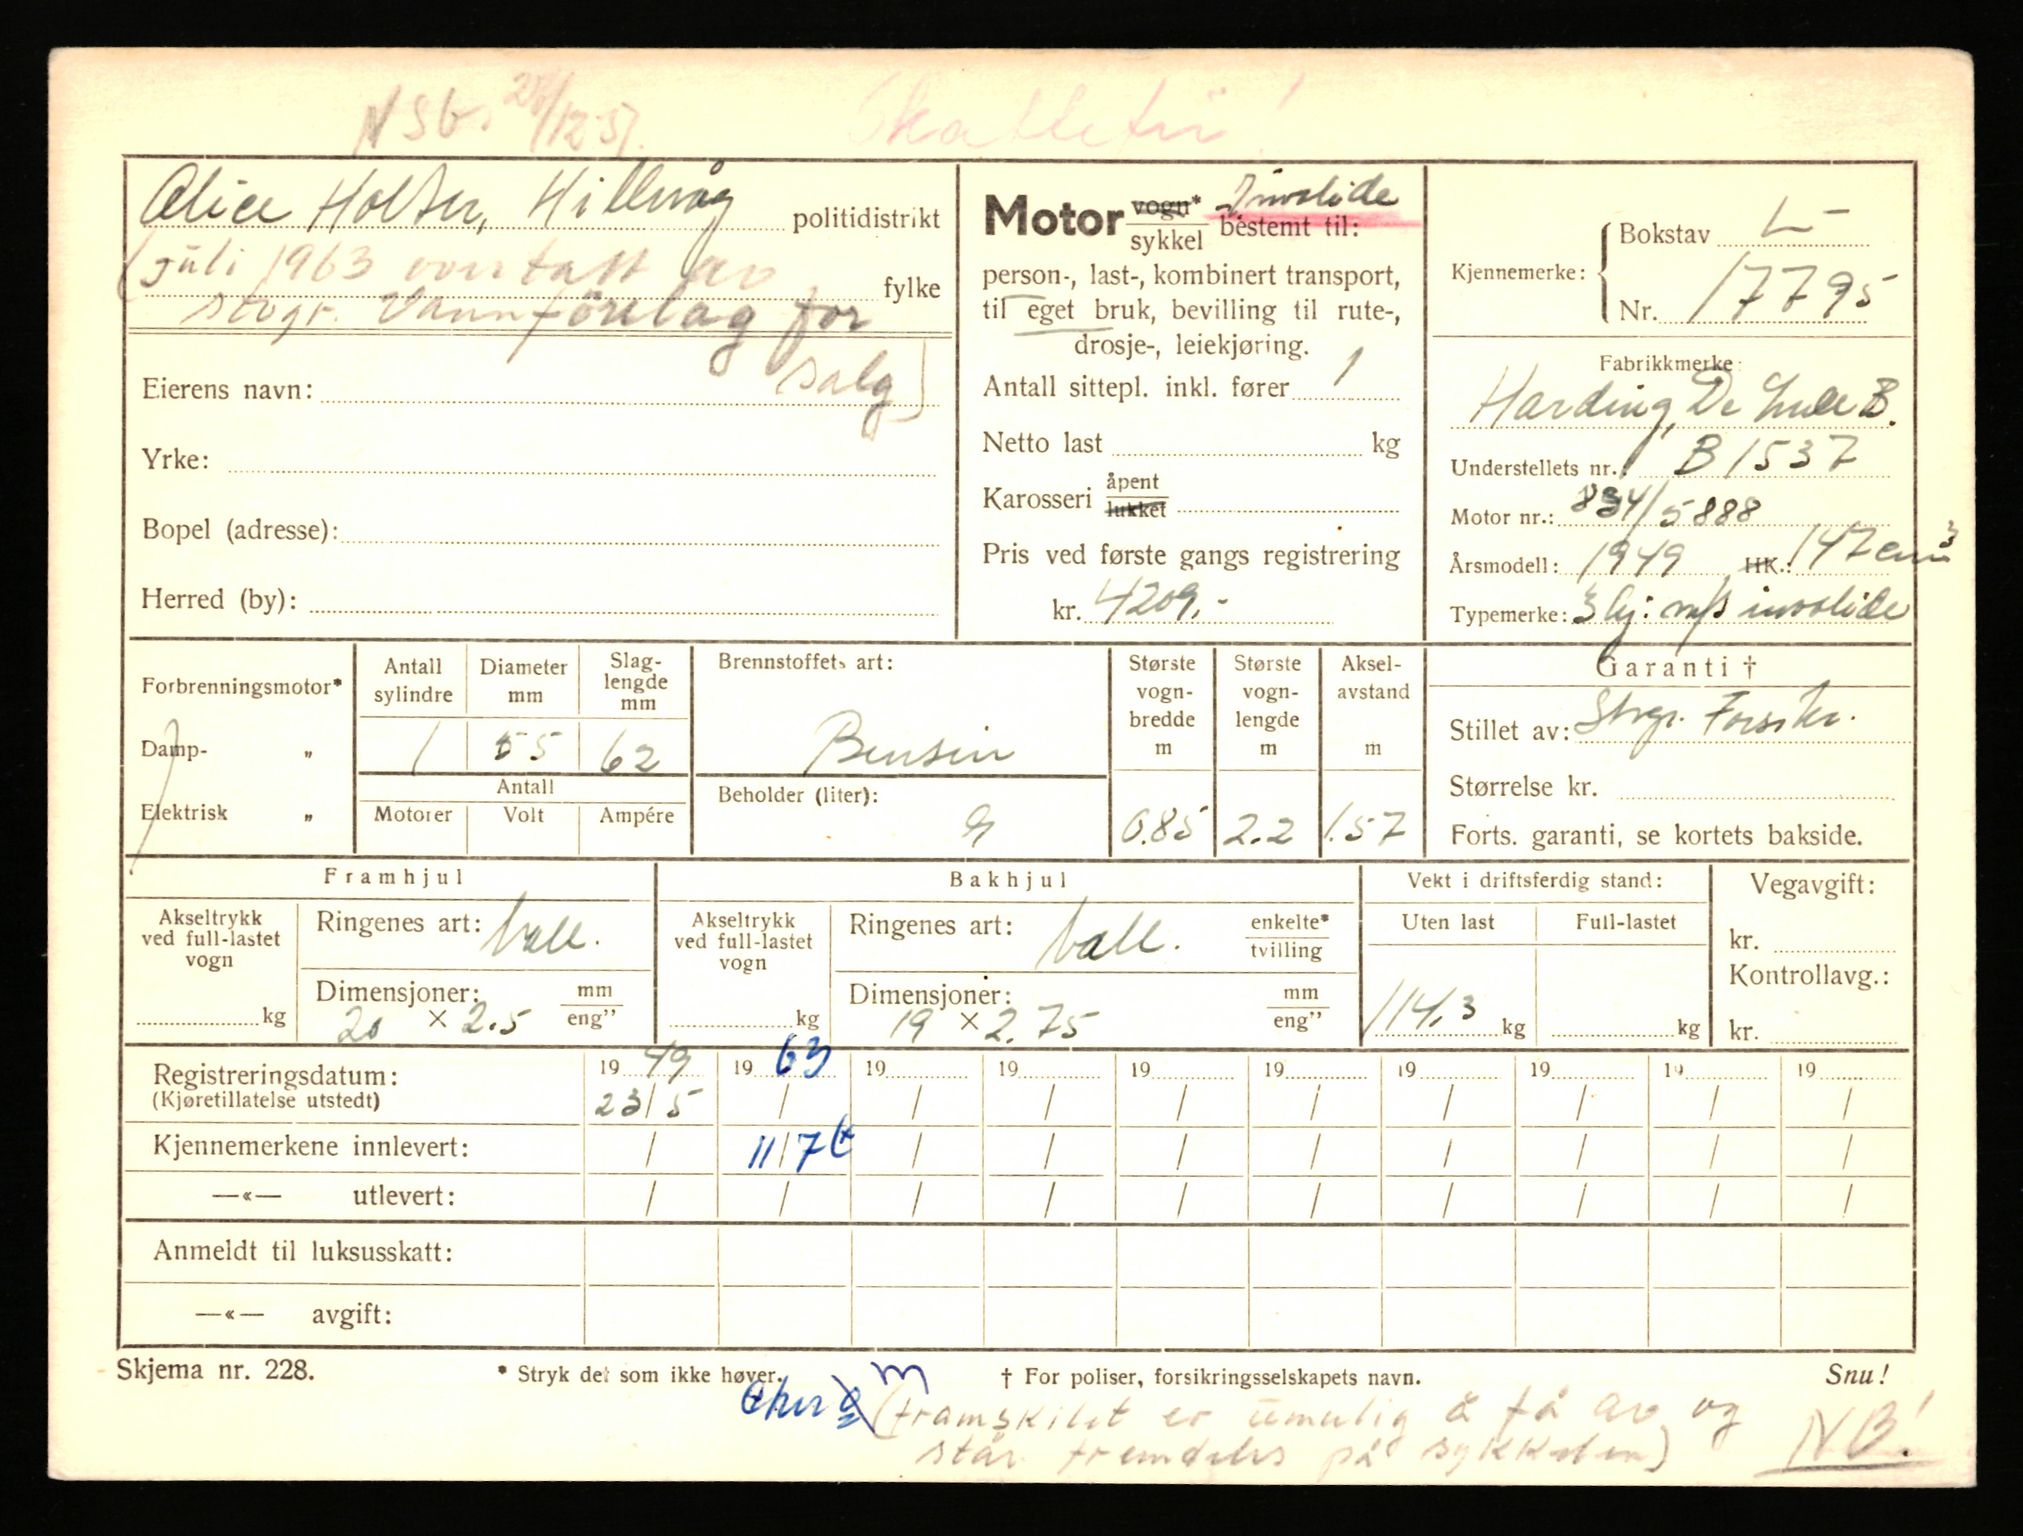 NSb. 28/12 51.
Skattefri!
Alice Holter, Hillevåg politidistrikt
(juli 1963 overtatt av fylke
stvgr. Vannforelag for
salg)
Eierens navn:
Yrke:
Bopel (adresse):
Herred (by):
Motor vogn* sykkel Invalide bestemt til:
person-, last-, kombinert transport,
til eget bruk, bevilling til rute-,
drosje-, leiekjøring.
Antall sittepl. inkl. fører 1
Netto last kg
Karosseri åpent lukket
Pris ved første gangs registrering
kr. 4209,-
Kjennemerke: Bokstav L-
Nr. 17795
Fabrikkmerke:
Harding, De Luxe B.
Understellets nr.: B 1537
Motor nr.: 834/5888
Årsmodell: 1949 HK.: 147 cm3
Typemerke: 3 hj: m/s invalide
Garanti †
Stillet av: Stvgr. Forsikr.
Størrelse kr.
Forts. garanti, se kortets bakside.
Forbrenningsmotor*
Damp- „
Elektrisk „
Antall sylindre 1
Diameter mm 55
Slag-lengde mm 62
Antall
Motorer Volt Ampére
Brennstoffets art:
Bensin
Beholder (liter):
9
Største vogn-bredde m 0.85
Største vogn-lengde m 2.2
Aksel-avstand m 1.57
Framhjul
Akseltrykk ved full-lastet vogn kg
Ringenes art: ball.
Dimensjoner: mm eng”
20 × 2.5
Bakhjul
Akseltrykk ved full-lastet vogn kg
Ringenes art: ball. enkelte* tvilling
Dimensjoner: mm eng”
19 × 2.75
Vekt i driftsferdig stand:
Uten last Full-lastet
114,3 kg kg
Vegavgift:
kr.
Kontrollavg.:
kr.
Registreringsdatum: 19 49 19 63 19 19 19 19 19 19 19 19
(Kjøretillatelse utstedt) 23/5 / / / / / / / / /
Kjennemerkene innlevert: / 11/7 / / / / / / / /
—«— utlevert: / / / / / / / / / /
Anmeldt til luksusskatt:
—«— avgift:
Skjema nr. 228. * Stryk det som ikke høver. † For poliser, forsikringsselskapets navn. Snu!
m
(framskilet er umulig å få av og
står fremdeles på sykkelen) NB!